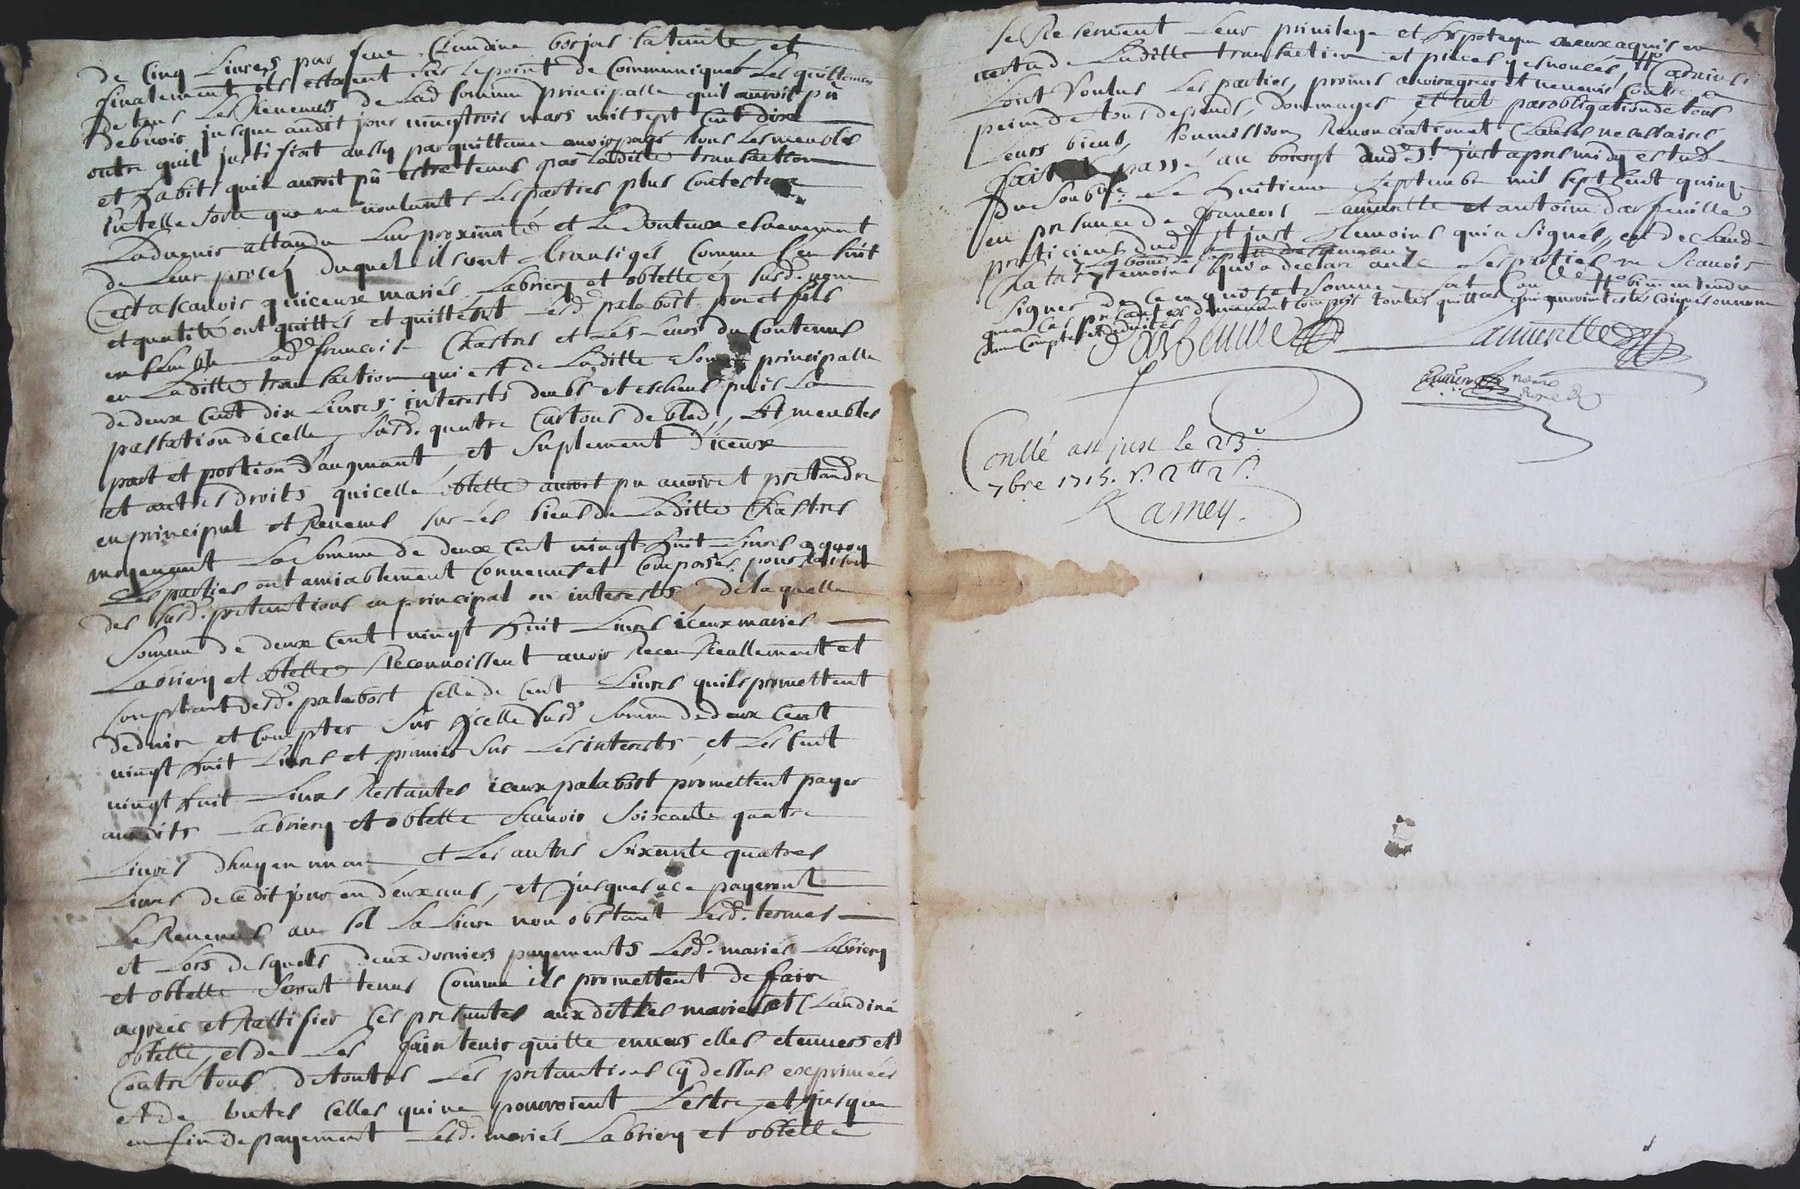 de Cinq Livres par feue Claudine borjas sa tante, et
finalement ils estoient sur le point de Communiquer Les quittances
de tous Les Revenus de Lad. somme principalle quil auroit pû
debvoir jusque audit jour vingt trois mars mil sept Cent dix
outre quil justifiat aussy par quittance avoir payé tous Les meubles
et habits quil auroit pû estre tenus par Laditte transaction
En telle sorte que ne voulants Les parties plus Contester
Ladvenir attendu Leur proximité et Le doutteux evenement
de Leur procès duquel ils ont transigés Comme sen suit
Cest a scavoir quiceux mariés Labriery et obtelle en susd. nom
et qualité ont quittés et quittent Lesd. palabost pere et fils
ensemble Lad. francoise Chastre et Les Leurs du Contenus
en Laditte transaction qui est de Laditte Somme principalle
de deux Cent dix Livres, interests deubs et escheus puis La
passation dicelle, susd. quatre Cartons de bled, Et meubles
part et portion d'augmant, et suplement d'iceux
et autres droits quicelle obtelle auroit pu avoir et pretendre
en principal et Revenus sur Les biens de Laditte Chastre
moyenant La somme de deux Cent vingt huit Livres a quoy
Les parties ont amiablement Convenus et Composés, pour raison
des susd. pretentions en principal ou interests de laquelle
Somme de deux Cent vingt huit Livres iceux mariés
Labriery et obtelle Reconnoissent avoir Receu Reallement et
Comptant desd. palabost celle de Cent Livres quils promettent
deduire et Compter sur Icelle susd. Somme de deux Cent
vingt huit Livres et premier sur Les interests, et Les Cent
vingt huit Livres Restantes iceux palabost promettent payer
ausdits Labriery et obtelle Scavoir Soixante quatre
Livres dhuy en un an, et Les autres Soixante quatres
Livres de Cedit jour en deux ans, et jusques a ce payeront
Le Revenus au sol La Livre non obstant Lesd. termes
et Lors desquels deux derniers payements Lesd. mariés Labriery
et obtelle seront tenus Comme ils promettent de faire
agreer et Rattifier Ces presentes aux dittes marie et Claudine
obtelle, et de Les faire tenir quitte envers elles et envers et
Contre tous de toutes Les pretantions cy dessus exprimées
et de toutes Celles qui ne pourroient Lestre, et jusque
en fin de payement Lesd. mariés Labriery et obtelle
se Reservent Leur privilege et hypoteque a eux acquis en
vertu de Laditte transaction et pieces y enoncés, Car ainsi
L'ont Voulus Les parties, promis avoir agreé et ne venir Contre a
peine de tous despends, dommages et Int. par obligation de tous
Leurs biens, soumission, Renonciation et Clauses necessaires
fait et passé au bourgt dud. St. just apres midy estude
du Soubné. Le huitieme septembre mil sept Cent quinze
en presence de francois Lamurette et antoine darfeuille
praticiens dud. St just temoins qui a Signés, et de Claude
Chatre temoins qui a declaré avec Les parties ne scavoir
Signer de Ce enquis et sommé
que Ces presentes demeurant Compris toutes quittes
d'un Compte
Darfeuille Lamurette
Conllé a St just le 23e
7bre 1715. r. 2tt 2s.
Ramey.